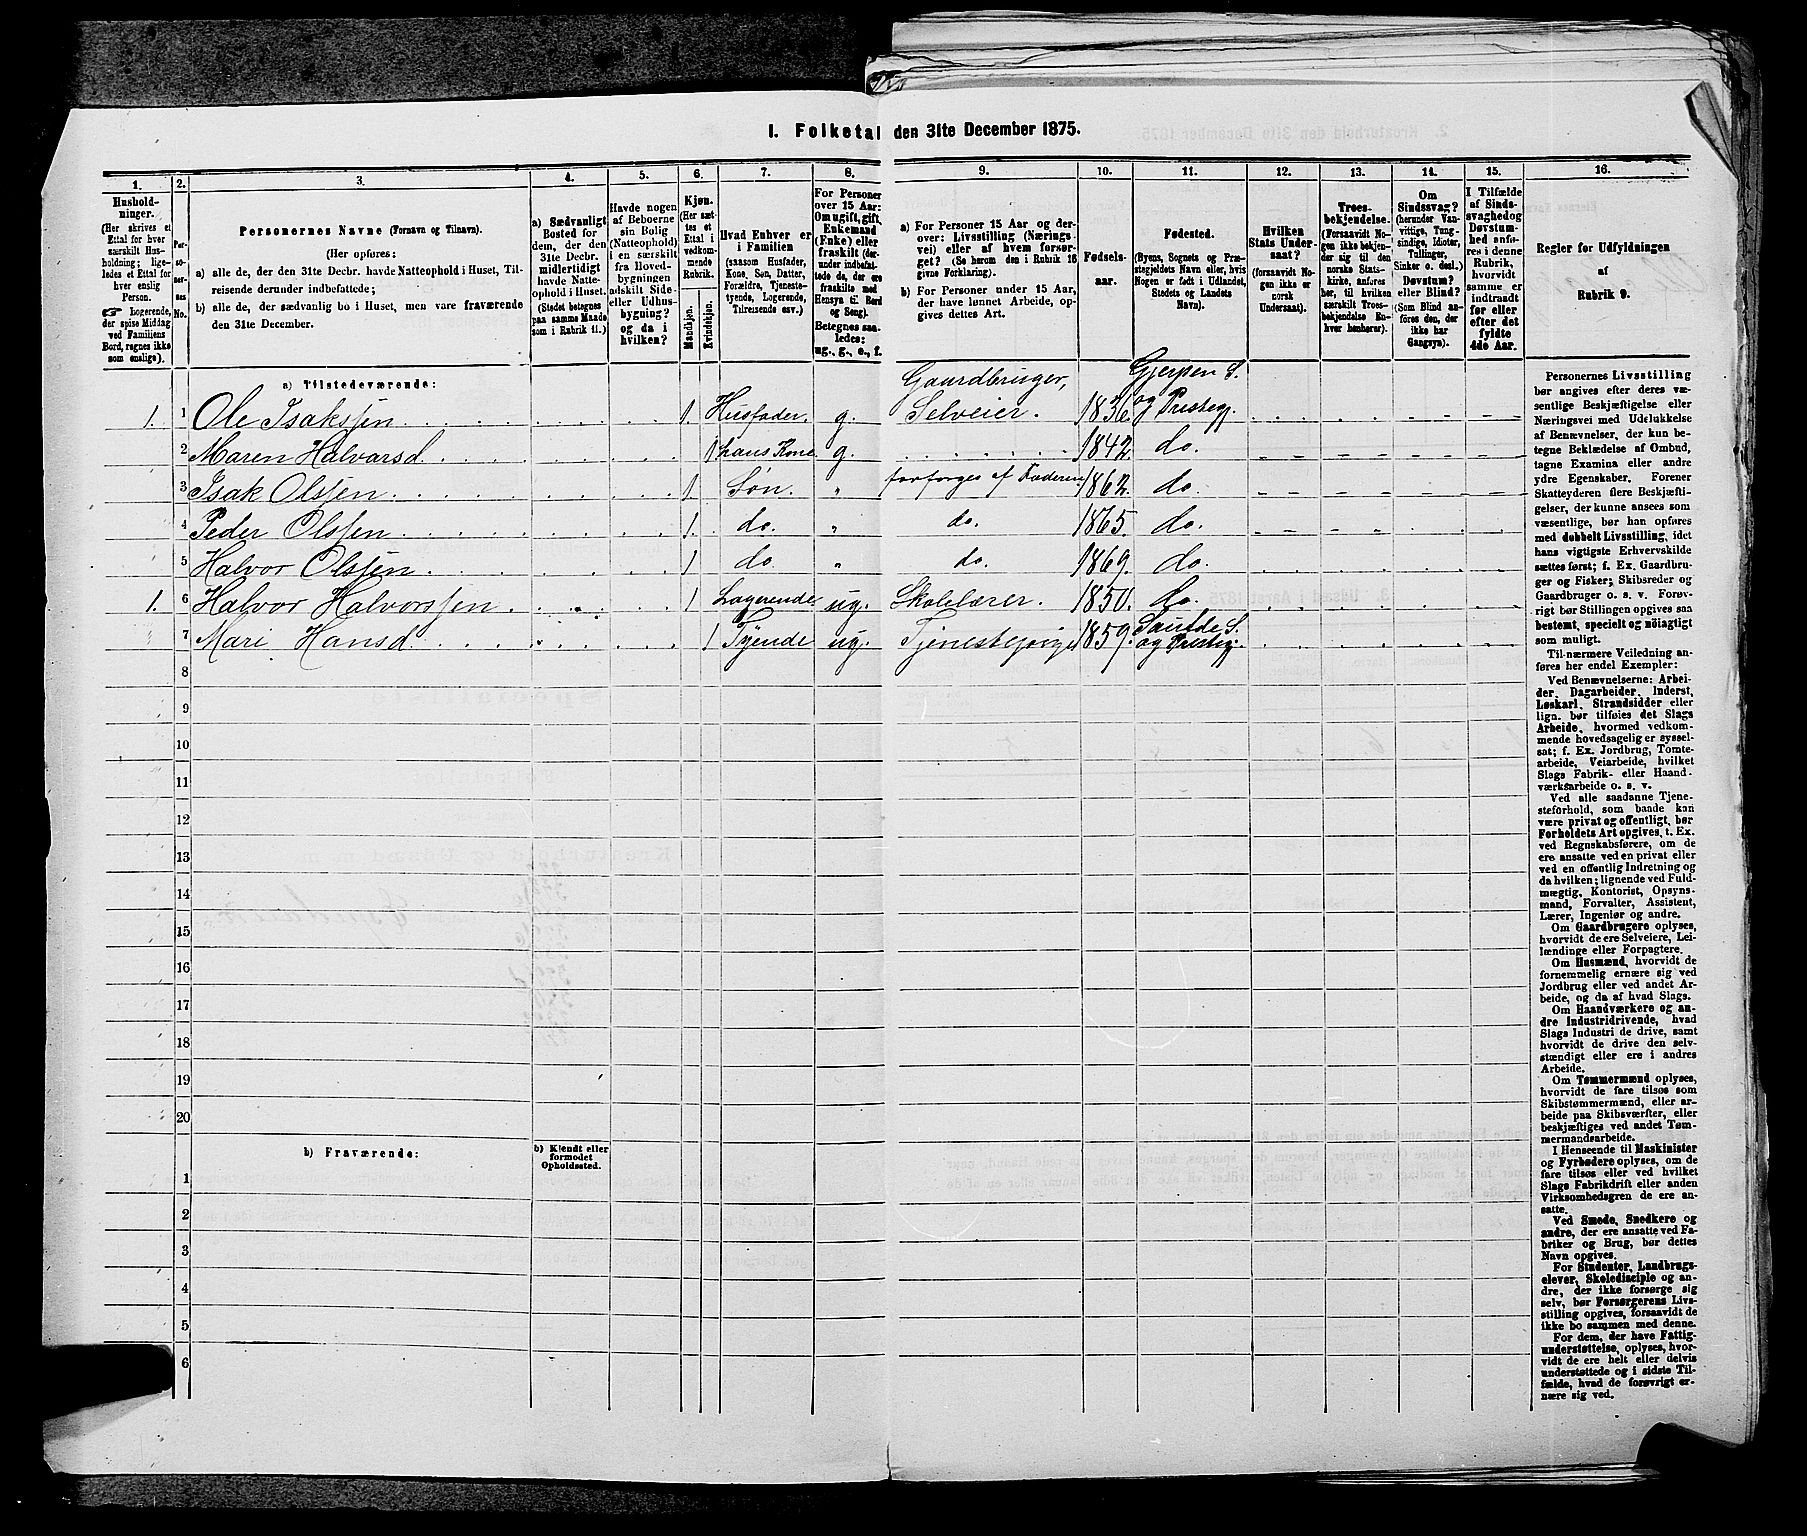 I. Folketal den 31te December 1875.
1. 2. 3. 4. 5. 6. 7. 8. 9. 10. 11. 12. 13. 14. 15. 16.
Hushold-
ninger.
(Her skrives et
Ettal for hver
særskilt Hus-
holdning; lige-
ledes et Ettal for
hver enslig
Person.
☞ Logerende,
der spise Middag
ved Familiens
Bord, regnes ikke
som enslige).
Personernes Navne (Fornavn og Tilnavn).
(Her opføres:
a) alle de, der den 31te Decbr. havde Natteophold i Huset, Til-
reisende derunder indbefattede;
b) alle de, der sædvanlig bo i Huset, men vare fraværende
den 31te December.
a) Sædvanligt
Bosted for
dem, der den
31te Decbr.
midlertidigt
havde Natte-
ophold i Huset.
(Stedet betegnes
paa samme Maade
som i Rubrik 11.)
Havde nogen
af Beboerne
sin Bolig
(Natteophold)
i en særskilt
fra Hoved-
bygningen
adskilt Side-
eller Udhus-
bygning?
og da i
hvilken?
Kjøn.
(Her sæt-
tes et
Ettal i
vedkom-
mende
Rubrik.
Mandkjøn.
Kvindekjøn.
Hvad Enhver er
i Familien
(saasom Husfader,
Kone, Søn, Datter,
Forældre, Tjeneste-
tyende, Logerende,
Tilreisende osv.)
For Personer
over 15 Aar:
Om ugift, gift,
Enkemand
(Enke) eller
fraskilt (her-
under indbefat-
tede de, der ere
fraskilte med
Hensyn til Bord
og Seng).
Betegnes saa-
ledes:
ug., g., e., f.
a) For Personer 15 Aar og der-
over: Livsstilling (Nærings-
vei) eller af hvem forsør-
get? (Se herom den i Rubrik 16
givne Forklaring).
b) For Personer under 15 Aar,
der have lønnet Arbeide, op-
gives dettes Art.
Fødsels-
aar.
Fødested.
(Byens, Sognets og Præ-
stegjeldets Navn eller, hvis
Nogen er født i Udlandet,
Stedets og Landets
Navn).
Hvilken
Stats Under-
saat?
(forsaavidt No-
gen ikke er
norsk
Undersaat).
Troes-
bekjendelse.
(Forsaavidt No-
gen ikke bekjen-
der sig til den
norske Stats-
kirke, anføres
her, til hvilken
særskilt Troes-
bekjendelse En-
hver henhører).
Om
Sindssvag?
(herunder Van-
vittige, Tung-
sindige, Idioter,
Tullinger,
Sinker o. desl.)
Døvstum?
eller Blind?
(Som Blind an-
føres den, der
ikke har
Gangsyn).
I Tilfælde
af Sinds-
svaghed og
Døvstum-
hed anfø-
res i denne
Rubrik,
hvorvidt
samme er
indtraadt
før eller
efter det
fyldte
4de Aar.
Regler for Udfyldningen
af
Rubrik 9.
a) Tilstedeværende:
1. 1 Ole Isakssen 1. Husfader g. Gaardbruger, Selveier. 1836. Gjerpen S. og Presteg.
2 Maren Halvarsd. 1 hans Kone g. 1842. do.
3 Isak Olssen 1 Søn. " forsørges af Faderen 1862. do.
4 Peder Olssen 1. do. " do. 1865. do.
5 Halvor Olssen 1 do. " do. 1869. do.
1. 6 Halvor Halvorssen 1 Logerende ug. Skolelærer. 1850. do.
7 Mari Hansd. 1 Tyende ug. Tjenestepige 1859. Saude S. og Presteg.
8
9
10
11
12
13
14
15
16
17
18
19
20
b) Fraværende:
b) Kjendt eller
formodet
Opholdssted.
1
2
3
4
5
6
Personernes Livsstilling
bør angives efter deres væ-
sentlige Beskjæftigelse eller
Næringsvei med Udelukkelse
af Benævnelser, der kun be-
tegne Beklædelse af Ombud,
tagne Examina eller andre
ydre Egenskaber. Forener
Skatteyderen flere Beskjæfti-
gelser, der kunne ansees som
væsentlige, bør han opføres
med dobbelt Livsstilling, idet
hans vigtigste Erhvervskilde
sættes først; f. Ex. Gaardbru-
ger og Fisker; Skibsreder og
Gaardbruger o. s. v. Forøv-
rigt bør Stillingen opgives saa
bestemt, specielt og nöiagtigt
som muligt.
Til nærmere Veiledning an-
føres her endel Exempler:
Ved Benævnelserne: Arbei-
der, Dagarbeider, Inderst,
Løskarl, Strandsidder eller
lign. bør tilføies det Slags
Arbeide, hvormed vedkom-
mende hovedsagelig er syssel-
sat; f. Ex. Jordbrug, Tomte-
arbeide, Veiarbeide, hvilket
Slags Fabrik- eller Haand-
værksarbeide o. s. v.
Ved alle saadanne Tjene-
steforhold, som baade kan
være privat og offentligt, bør
Forholdets Art opgives, t. Ex.
ved Regnskabsførere, om de
ere ansatte ved en privat eller
ved en offentlig Indretning og
da hvilken; lignende ved Fuld-
mægtig, Kontorist, Opsyns-
mand, Forvalter, Assistent,
Lærer, Ingeniør og andre.
Om Gaardbrugere oplyses,
hvorvidt de ere Selveiere, Lei-
lændinge eller Forpagtere.
Om Husmænd, hvorvidt de
fornemmelig ernære sig ved
Jordbrug eller ved andet Ar-
beide, og da af hvad Slags.
Om Haandværkere og an-
dre Industridrivende, hvad
Slags Industri de drive, samt
hvorvidt de drive den selv-
stændigt eller ere i andres
Arbeide.
Om Tømmermænd oplyses,
hvorvidt de fare tilsøs som
Skibstømmermænd, eller ar-
beide paa Skibsværfter, eller
beskjæftiges ved andet Tøm-
mermandsarbeide.
I Henseende til Maskinister
og Fyrbødere oplyses, om de
fare tilsøs eller ved hvilket
Slags Fabrikdrift eller anden
Virksomhedsgren de ere an-
satte.
Ved Smede, Snedkere og
andre, der ere ansatte ved Fa-
briker og Brug, bør dettes
Navn opgives.
For Studenter, Landbrugs-
elever, Skoledisciple og an-
dre, der ikke forsørge sig
selv, bør Forsørgerens Livs-
stilling opgives, forsaavidt de
ikke bo sammen med denne.
For dem, der have Fattig-
understøttelse, oplyses, hvor-
vidt de ere helt eller delvis
understøttede og i sidste Til-
fælde, hvad de forøvrigt er-
nære sig ved.